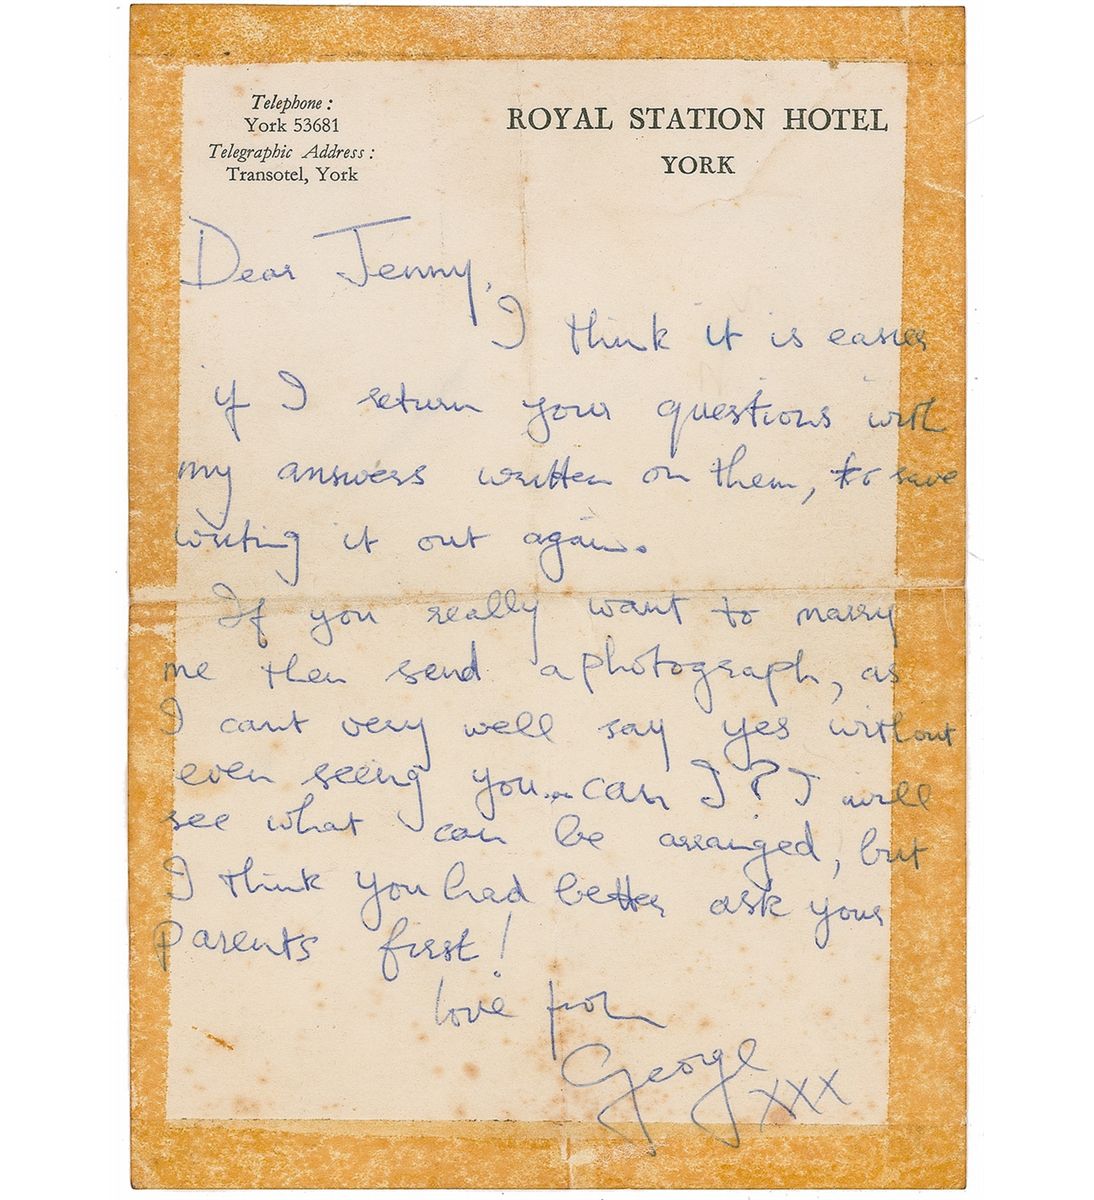 Telephone :
York 53681
Telegraphic Address :
Transotel, York
ROYAL STATION HOTEL
YORK
Dear Jenny,
I think it is easier
if I return your questions with
my answers written on them, to save
writing it out again.
If you really want to marry
me then send a photograph, as
I cant very well say yes without
even seeing you... can I? I will
see what can be arranged, but
I think you had better ask your
Parents first!
love from
George
XXX